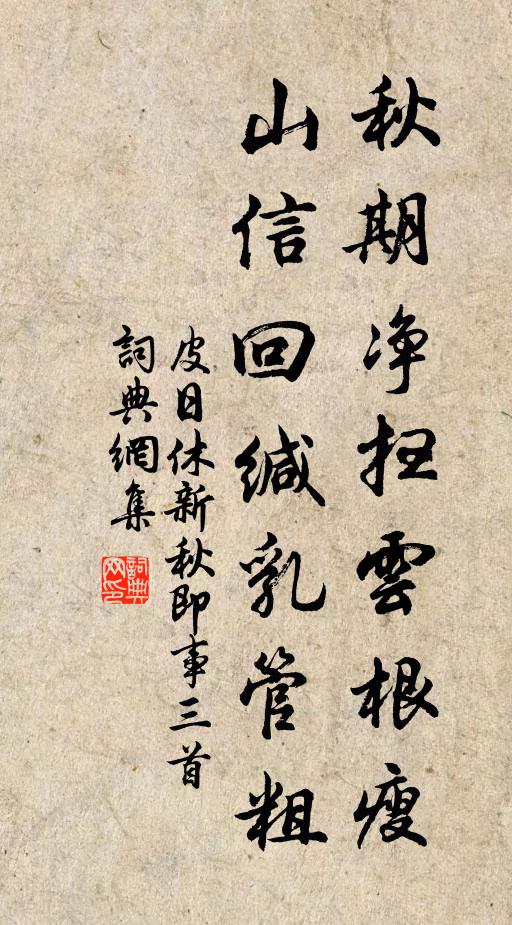 秋期净扫雲根瘦
山信回緘乳管粗
皮日休新秋即事三首
詞典網集
詞典
网印